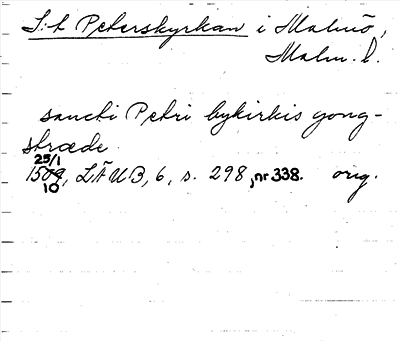 S:t Peterskyrkan i Malmö,
Malm. l.
sancti Petri bykirkis gong-
stræde
25/1
1509, LÄUB, 6, s. 298, nr 338. orig.
10